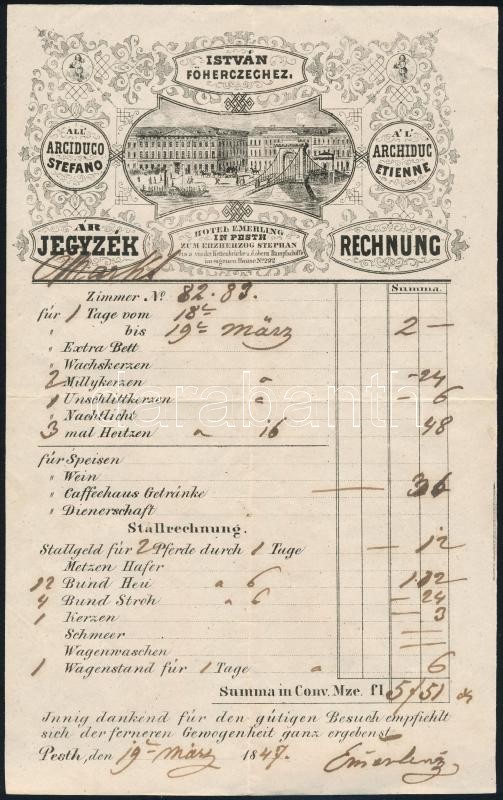 ISTVÁN
FŐHERCZEGHEZ.
ALL'
ARCIDUCO
STEFANO
A' L'
ARCHIDUC
ETIENNE
ÁR
JEGYZÉK
HOTEL EMERLING
IN PESTH
ZUM ERZHERZOG STEPHAN
im eigenen Hause No 292
RECHNUNG
Summa.
Zimmer No 82. 83.
für 1 Tage vom 18t
" bis 19t März 2 —
" Extra Bett
" Wachskerzen
2 Millykerzen a — 24
1 Unschlittkerzen a — 6
" Nachtlicht
3 mal Heitzen a 16 48
für Speisen
" Wein
" Caffeehaus Getränke — 36
" Dienerschaft
Stallrechnung.
Stallgeld für 2 Pferde durch 1 Tage — 12
Metzen Hafer
12 Bund Heu a 6 1.12
4 Bund Stroh a 6 — 24
1 Kerzen — 3
Schmeer
Wagenwaschen
1 Wagenstand für 1 Tage a 6
Summa in Conv. Mze. fl 5/51
Innig dankend für den gütigen Besuch empfiehlt
sich der ferneren Gewogenheit ganz ergebenst
Pesth, den 19t März 1847. Emerling
darabanth